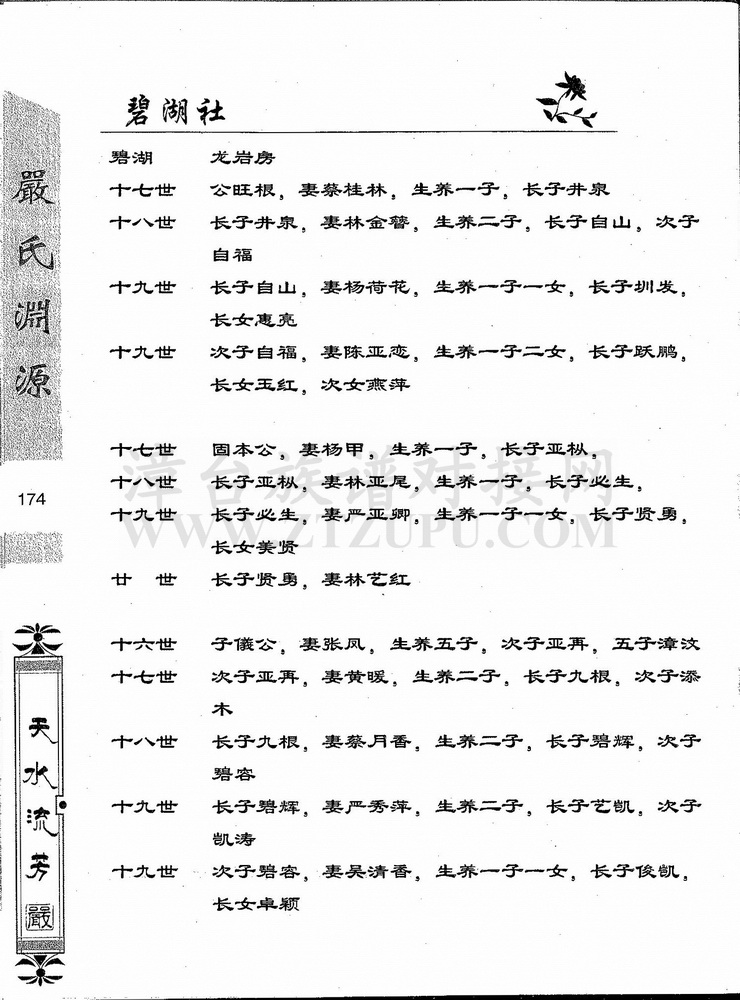 碧湖社
嚴氏淵源
174
天水流芳
嚴
碧湖 龙岩房
十七世 公旺根，妻蔡桂林，生养一子，长子井泉
十八世 长子井泉，妻林金簪，生养二子，长子自山，次子
自福
十九世 长子自山，妻杨荷花，生养一子一女，长子圳发，
长女惠亮
十九世 次子自福，妻陈亚恋，生养一子二女，长子跃鹏，
长女玉红，次女燕萍
十七世 固本公，妻杨甲，生养一子，长子亚枞，
十八世 长子亚枞，妻林亚尾，生养一子，长子必生，
十九世 长子必生，妻严亚卿，生养一子一女，长子贤勇，
长女美贤
廿 世 长子贤勇，妻林艺红
十六世 子儀公，妻张凤，生养五子，次子亚再，五子漳汶
十七世 次子亚再，妻黄暖，生养二子，长子九根，次子添
木
十八世 长子九根，妻蔡月香，生养二子，长子碧辉，次子
碧容
十九世 长子碧辉，妻严秀萍，生养二子，长子艺凯，次子
凯涛
十九世 次子碧容，妻吴清香，生养一子一女，长子俊凯，
长女卓颖
漳台族谱对接网
WWW.ZTZUPU.COM